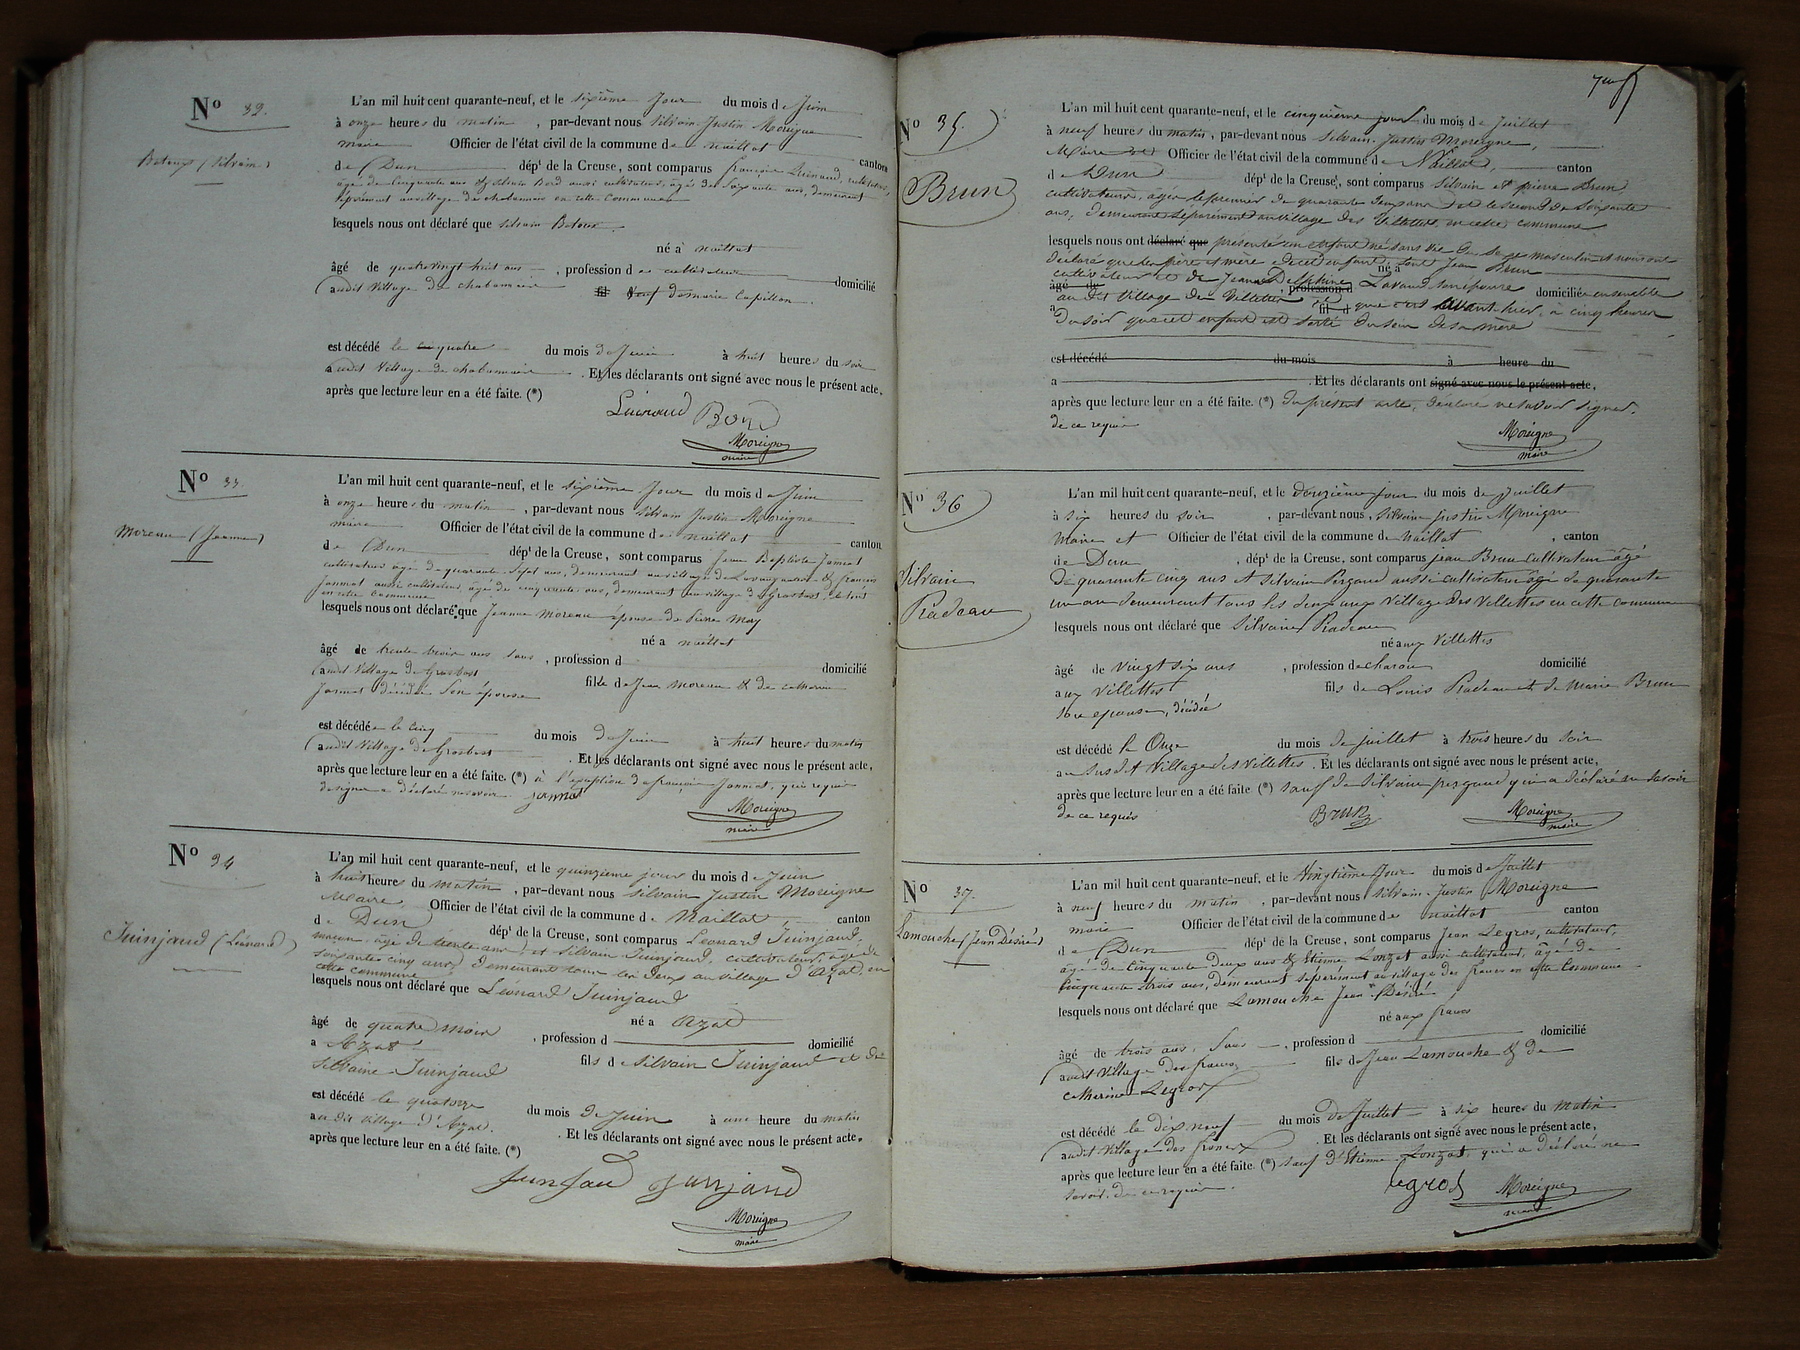 N° 32.
Betoux (Silvain)
L'an mil huit cent quarante-neuf, et le sixième Jour du mois de Juin
à onze heures du matin, par-devant nous Silvain Justin Moreigne
maire Officier de l'état civil de la commune de naillat canton
de Dun dépt de la Creuse, sont comparus françois cultivateur,
âgé de Cinquante ans & Silvain Bord aussi cultivateur, âgé de Soixante ans, demeurant
séparément au village de chabannais en cette Commune
lesquels nous ont déclaré que Silvain Betoux
né à naillat
âgé de quatrevingt huit ans, profession de cultivateur domicilié
audit Village de chabannais fil Veuf de marie Capillon.
est décédé le quatre du mois de Juin à huit heures du soir
audit Village de chabannais. Et les déclarants ont signé avec nous le présent acte,
après que lecture leur en a été faite. (*)
Bord
Moreigne
maire
N° 33.
moreau (Jeanne)
L'an mil huit cent quarante-neuf, et le sixième Jour du mois de Juin
à onze heures du matin, par-devant nous Silvain Justin Moreigne
maire Officier de l'état civil de la commune de naillat canton
de Dun dépt de la Creuse, sont comparus Jean Baptiste Jannot
cultivateur âgé de quarante Sept ans, demeurant au village de & françois
Jannot aussi cultivateur, âgé de cinquante ans, demeurant au village de Grosbost, le tout
en cette Commune
lesquels nous ont déclaré que Jeanne moreau épouse de Pierre May
né à naillat
âgé de trente trois ans sans, profession d domicilié
audit Village de Grosbost fille de Jean moreau & de catherine
Jannot décédée Son épouse
est décédée le cinq du mois de Juin à huit heures du matin
audit Village de Grosbost. Et les déclarants ont signé avec nous le présent acte,
après que lecture leur en a été faite. (*) à l'exception de françois Jannot, qui requis
de signer a déclaré ne savoir. jannot
Moreigne
maire
N° 34
Juinjaud (Léonard)
L'an mil huit cent quarante-neuf, et le quinzième jour du mois de Juin
à huit heures du matin, par-devant nous Silvain Justin Moreigne
Maire, Officier de l'état civil de la commune de Naillat, canton
de Dun dépt de la Creuse, sont comparus Léonard Juinjaud,
maçon, âgé de trente ans, et Silvain Juinjaud, cultivateur, âgé de
soixante cinq ans, demeurant tous les deux au village d'Azat, en
cette commune
lesquels nous ont déclaré que Léonard Juinjaud
né à Azat
âgé de quatre mois, profession d domicilié
à Azat fils de Silvain Juinjaud et de
Silvaine Juinjaud
est décédé le quatorze du mois de Juin à une heure du matin
au dit village d'Azat. Et les déclarants ont signé avec nous le présent acte.
après que lecture leur en a été faite. (*)
JunJaud Junjaud
Moreigne
maire
N° 35.
Brun
L'an mil huit cent quarante-neuf, et le cinquième jour du mois de Juillet
à neuf heures du matin, par-devant nous Silvain Justin Moreigne,
Maire et Officier de l'état civil de la commune de Naillat, canton
de Dun dépt de la Creuse, sont comparus Silvain et pierre Brun
cultivateurs, âgés le premier de quarante deux ans et le second de soixante
ans, demeurant séparément au village des Villettes en cette commune
lesquels nous ont déclaré que présenté un enfant né sans vie du sexe masculin et nous ont
déclaré que les père et mère de cet enfant sont Jean Brun né à
cultivateur et de Jeanne Delphine Lavaud son épouse domiciliés ensemble
âgé de profession d
au dit village des Villettes et que c'est avant-hier, à cinq heures
a fil d
du soir que cet enfant est sorti du sein de sa mère
est décédé du mois à heure du
a. Et les déclarants ont signé avec nous le présent acte,
après que lecture leur en a été faite. (*) du présent acte, déclaré ne savoir signer,
de ce requis
Moreigne
maire
N° 36
Silvain
Radeau
L'an mil huit cent quarante-neuf, et le douzième jour du mois de Juillet
à six heures du soir, par-devant nous, Silvain Justin Moreigne
Maire et Officier de l'état civil de la commune de Naillat, canton
de Dun, dépt de la Creuse, sont comparus jean Brun Cultivateur âgé
de quarante cinq ans et Silvain Pergaud aussi cultivateur âgé de quarante
un an demeurant tous les deux aux Village des Villettes en cette commune
lesquels nous ont déclaré que Silvain Radeau
né aux Villettes
âgé de vingt six ans, profession de charon domicilié
aux Villettes fils de Louis Radeau et de Marie Brun
son epouse, décédée
est décédé le Onze du mois de juillet à trois heures du soir
au susdit Village des Villettes. Et les déclarants ont signé avec nous le présent acte,
après que lecture leur en a été faite (*) sauf de Silvain pergaud qui a déclaré ne savoir
de ce requis Brun
Moreigne
maire
N° 37.
Lamouche (Jean Désiré)
L'an mil huit cent quarante-neuf, et le Vingtième Jour du mois de Juillet
à neuf heures du matin, par-devant nous Silvain Justin Moreigne
maire Officier de l'état civil de la commune de naillat canton
de Dun dépt de la Creuse, sont comparus Jean Legros, cultivateur,
âgé de Cinquante Deux ans & Etienne Lonzat aussi cultivateur, âgé de
Cinquante trois ans, demeurant séparément au village des en cette Commune
lesquels nous ont déclaré que Lamouche Jean Désiré
né aux
âgé de trois ans, Sans, profession d domicilié
audit Village des fils de Jean Lamouche & de
catherine Legros
est décédé le dix neuf du mois de Juillet à six heures du matin
audit Village des. Et les déclarants ont signé avec nous le présent acte,
après que lecture leur en a été faite. (*) sauf d'Etienne Lonzat, qui a déclaré ne
savoir, de ce requis.
Legros
Moreigne
maire